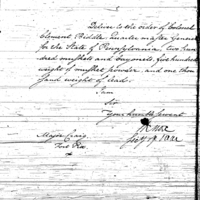 Deliver to the order of Colonel
Clement Biddle Quarter master General
for the State of Pennsylvania, two hun
dred muskets and bayonets, five hundred
weight of musket powder, and one thou
sand weight of lead.
I am
Sir
Your humble servant
Major Craig
Fort Pitt